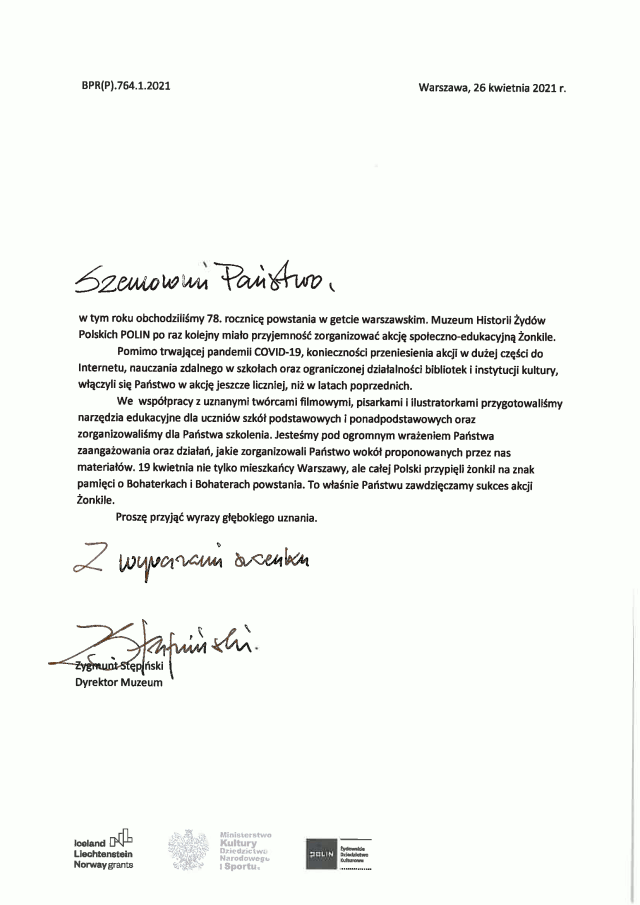 BPR(P).764.1.2021
Warszawa, 26 kwietnia 2021 r.
Szanowni Państwo,
w tym roku obchodziliśmy 78. rocznicę powstania w getcie warszawskim. Muzeum Historii Żydów
Polskich POLIN po raz kolejny miało przyjemność zorganizować akcję społeczno-edukacyjną Żonkile.
Pomimo trwającej pandemii COVID-19, konieczności przeniesienia akcji w dużej części do
Internetu, nauczania zdalnego w szkołach oraz ograniczonej działalności bibliotek i instytucji kultury,
włączyli się Państwo w akcję jeszcze liczniej, niż w latach poprzednich.
We współpracy z uznanymi twórcami filmowymi, pisarkami i ilustratorkami przygotowaliśmy
narzędzia edukacyjne dla uczniów szkół podstawowych i ponadpodstawowych oraz
zorganizowaliśmy dla Państwa szkolenia. Jesteśmy pod ogromnym wrażeniem Państwa
zaangażowania oraz działań, jakie zorganizowali Państwo wokół proponowanych przez nas
materiałów. 19 kwietnia nie tylko mieszkańcy Warszawy, ale całej Polski przypięli żonkil na znak
pamięci o Bohaterkach i Bohaterach powstania. To właśnie Państwu zawdzięczamy sukces akcji
Żonkile.
Proszę przyjąć wyrazy głębokiego uznania.
Z wyrazami szacunku
Z Stępiński
Zygmunt Stępiński
Dyrektor Muzeum
Iceland
Liechtenstein
Norway grants
Ministerstwo
Kultury
Dziedzictwa
Narodowego
i Sportu.
POLIN
Żydowskie
Dziedzictwo
Kulturowe